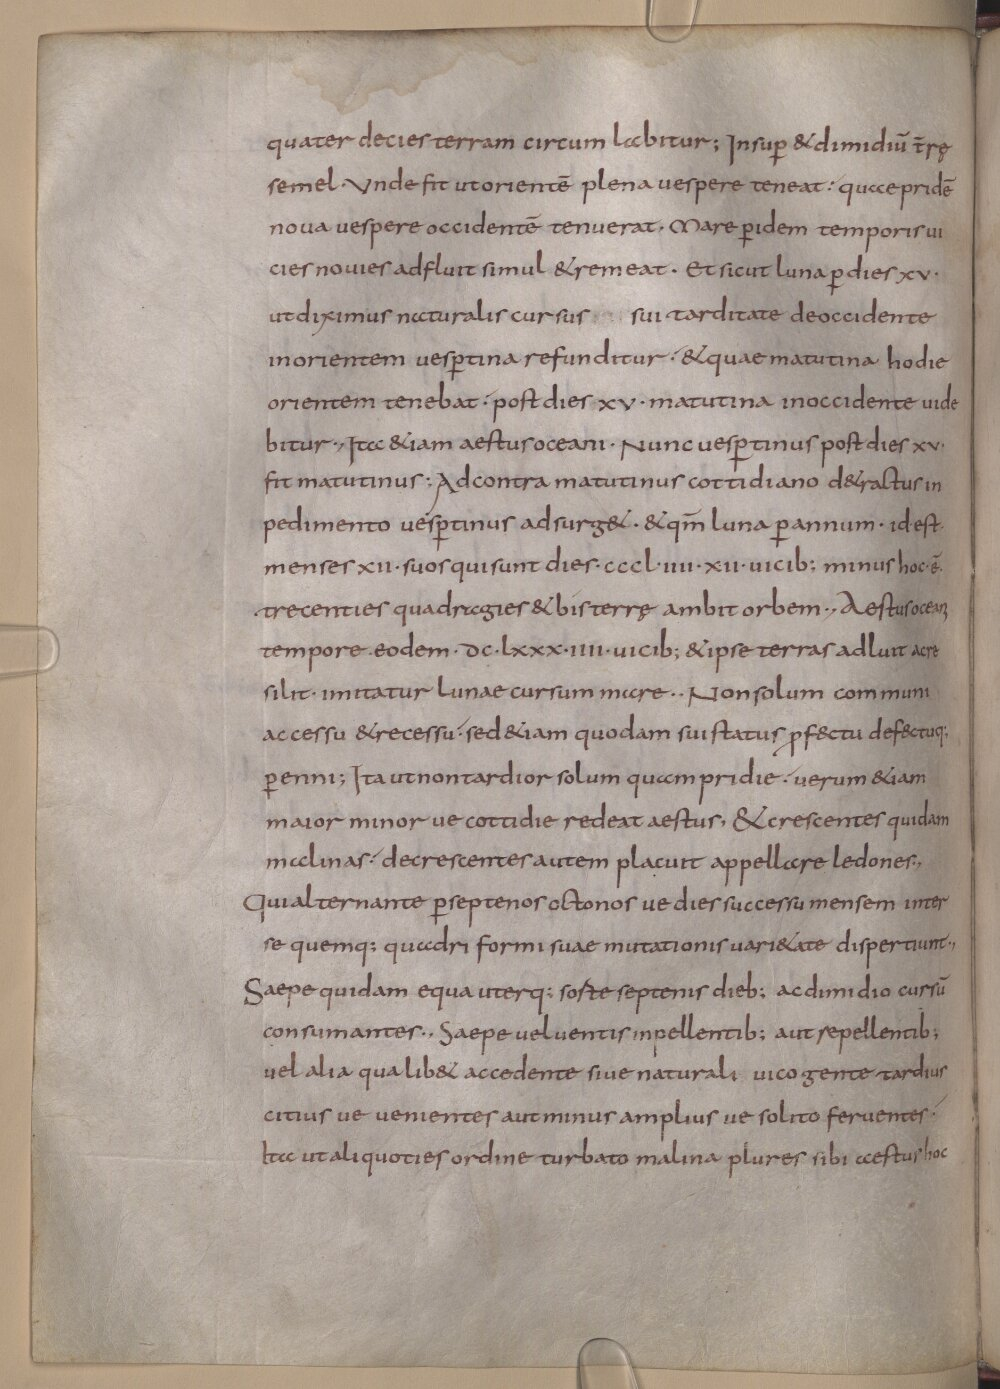 quater decies terram circum labitur; Insuꝑ & dimidiū t̄rę
semel. Vnde fit ut orientē plena uespere teneat. quae pridē
noua uespere occidentē tenuerat. Mare ꝑ idem temporis ui
cies nouies adfluit simul & remeat. Et sicut luna ꝑ dies xv.
ut diximus naturalis cursus sui tarditate de occidente
in orientem uesꝑtina refunditur. & quae matutina hodie
orientem tenebat. post dies xv. matutina in occidente uide
bitur., Ita &iam aestus oceani. Nunc uesꝑtinus post dies xv.
fit matutinus; Ad contra matutinus cottidiano d&ractus in
pedimento uesꝑtinus adsurg&. & qm̄ luna ꝑ annum. id est.
menses xii. suos qui sunt dies. cccl.iiii. xii. uicib; minus hoc. ē.
trecenties quadragies & bis terrę ambit orbem., Aestus oceani
tempore eodem. dc.lxxx.iiii. uicib; & ipse terras adluit acre
silit. imitatur lunae cursum mare.. Non solum communi
accessu & recessu. sed &iam quodam sui status ꝓf&ctu def&ctuq;
ꝑenni; Ita ut non tardior solum quam pridie. uerum &iam
maior minor ue cottidie redeat aestus, & crescentes quidam
malinas. decrescentes autem placuit appellare ledones.,
Qui alternante ꝑ septenos octonos ue dies successu mensem inter
se quemq; quadri formi suae mutationis uari&ate dispertiunt.,
Saepe quidam equa uterq; sorte septenis dieb; ac dimidio cursū
consumantes.. Saepe uel uentis inpellentib; aut repellentib;
uel alia qualib& accedente siue naturali ui cogente tardius
citius ue uenientes aut minus amplius ue solito feruentes.
Ita ut aliquoties ordine turbato malina plures sibi aestus hoc